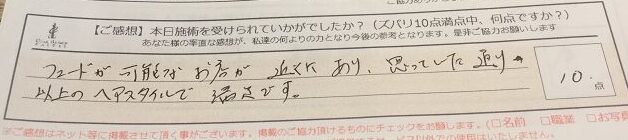 【ご感想】本日施術を受けられていかがでしたか？（ズバリ10点満点中、何点ですか？）
あなた様の率直な感想が、私達の何よりの力となり今後の参考となります。是非ご協力お願いします
フェードが可能なお店が近くにあり、思っていた通り
以上のヘアスタイルで満足です。
10.点
※ご感想はネット等に掲載させて頂く事がございます。掲載のご協力頂けるものにチェックをお願いします。（□名前 □職業 □お写真